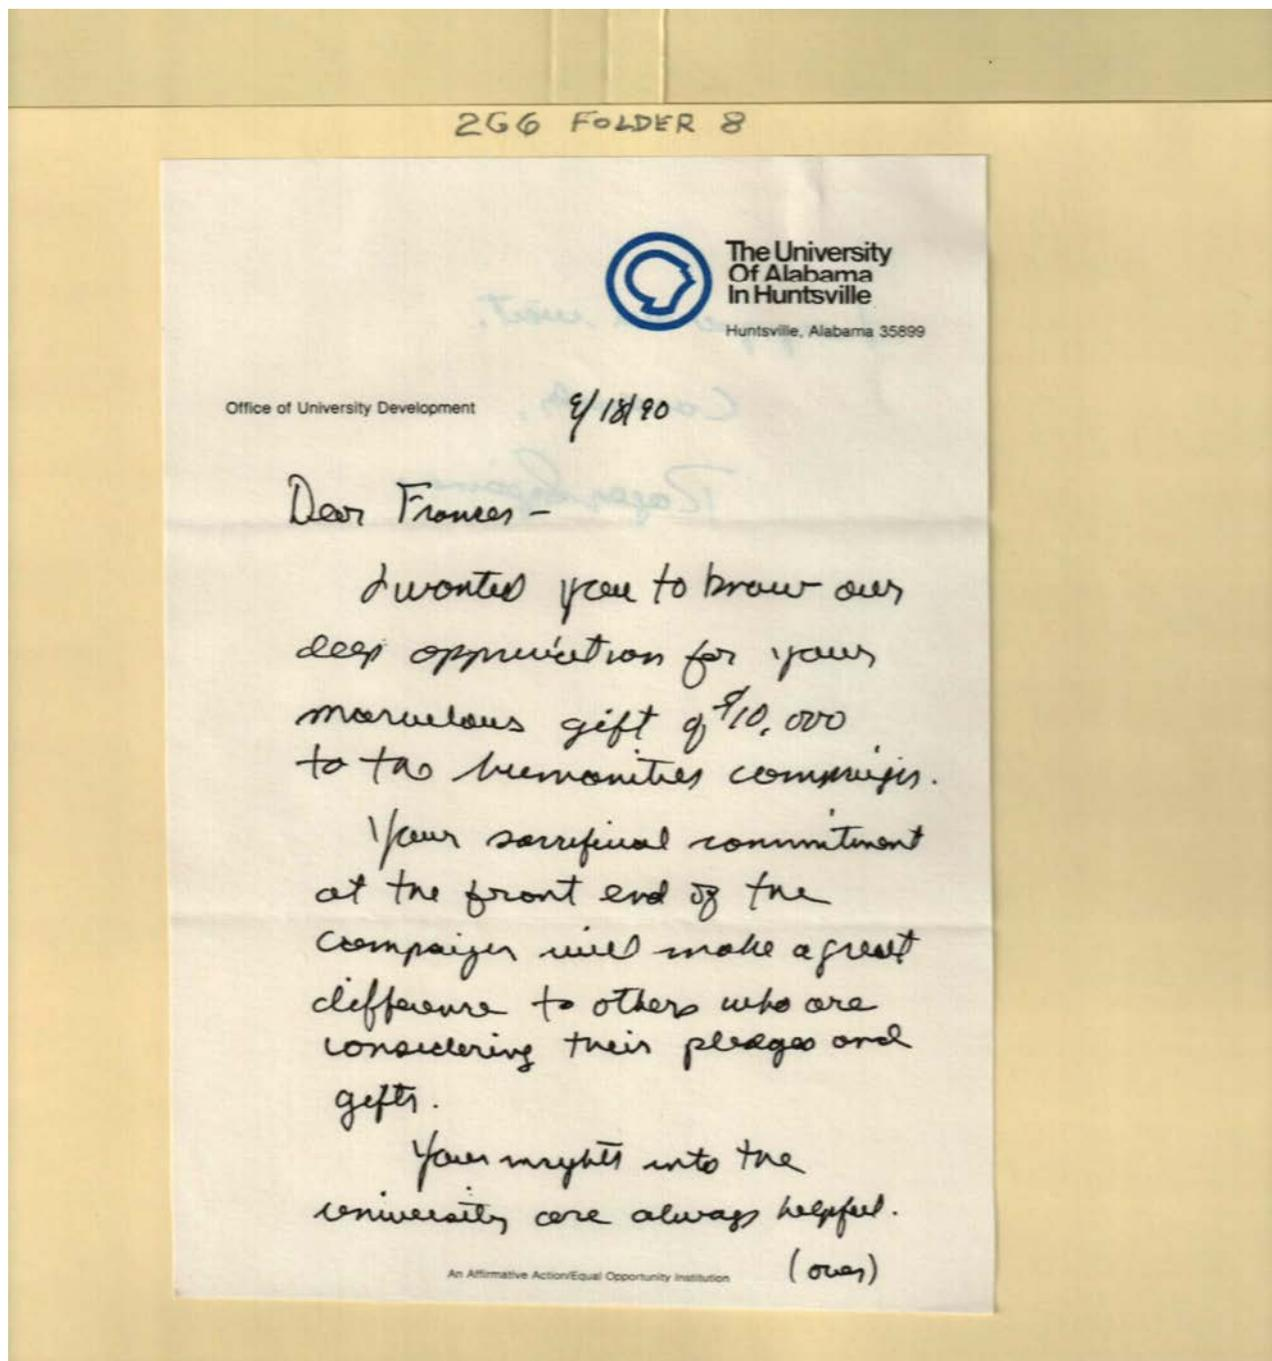 2G6 FOLDER 8
The University
Of Alabama
In Huntsville
Huntsville, Alabama 35899
Office of University Development
9/18/90
Dear Frances -
I wanted you to know our
deep appreciation for your
marvelous gift of $10,000
to the humanities campaign.
Your sacrificial commitment
at the front end of the
campaign will make a great
difference to others who are
considering their pledges and
gifts.
Your insights into the
university are always helpful.
(over)
An Affirmative Action/Equal Opportunity Institution